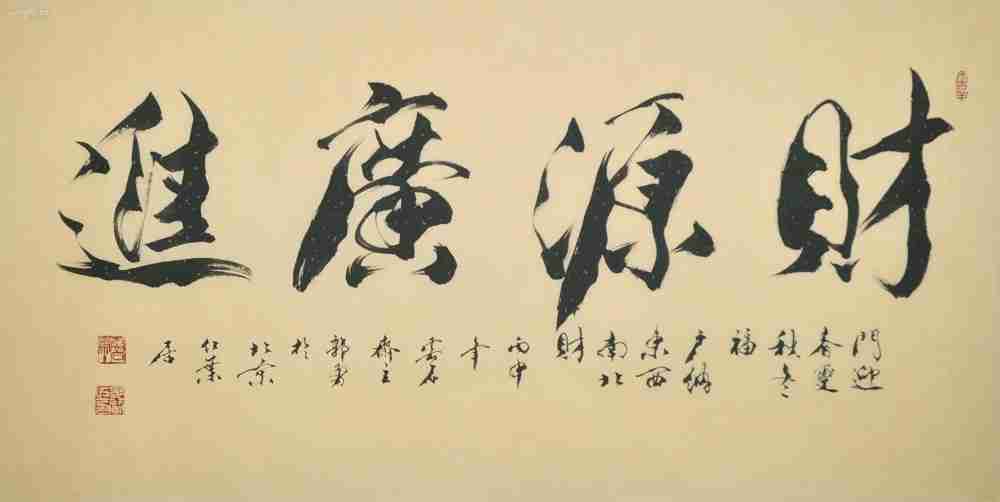 財源廣進
門迎
春夏
秋冬
福
戶納
東西
南北
財
丙申
年
雲石
齋主
郭
於
北京
仁業
居